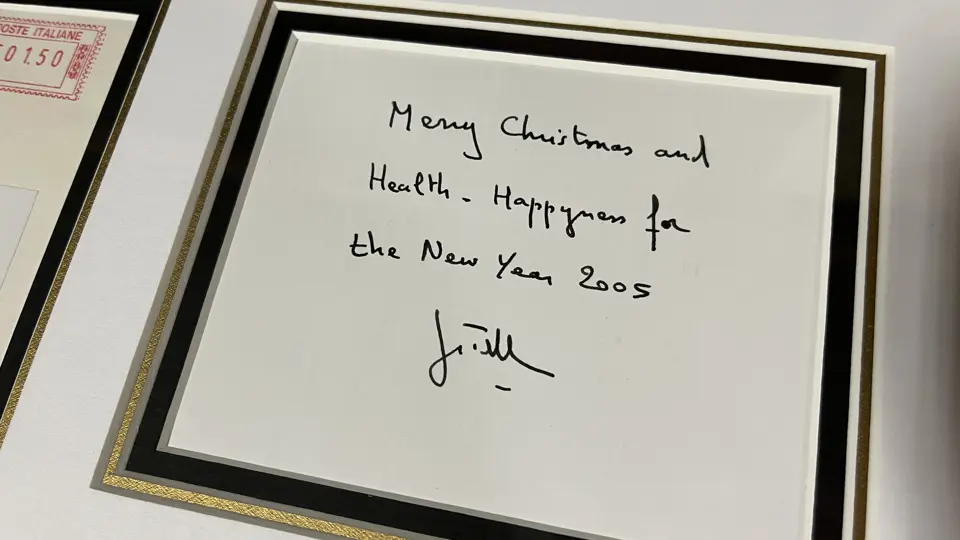 POSTE ITALIANE
01.50
Merry Christmas and
Health - Happyness for
the New Year 2005